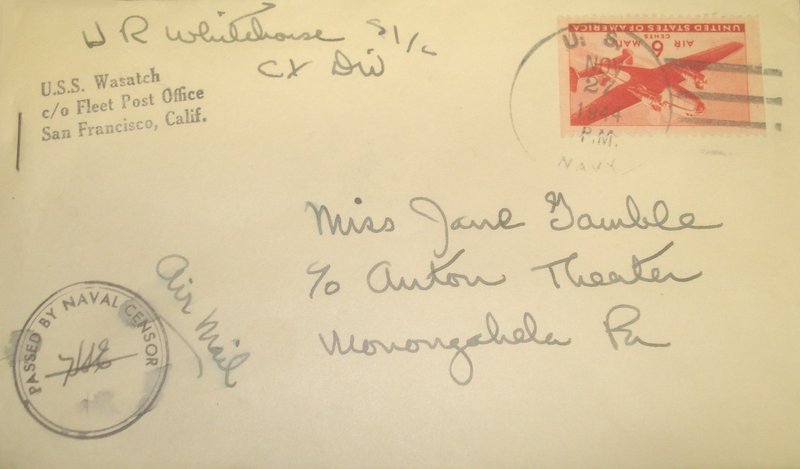 W R Whitehouse S1/c
CX Div
U.S.S. Wasatch
c/o Fleet Post Office
San Francisco, Calif.
UNITED STATES OF AMERICA
6 CENTS AIR MAIL
U. S.
NOV
27
1944
P.M.
NAVY
Miss Jane Gamble
c/o Anton Theater
Monongahela Pa
Air Mail
PASSED BY NAVAL CENSOR